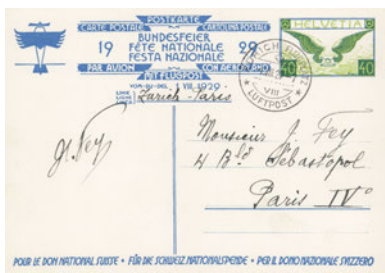 POSTKARTE
CARTE POSTALE CARTOLINA POSTALE
BUNDESFEIER
19 FÊTE NATIONALE 29
FESTA NAZIONALE
PAR AVION CON AEROPLANO
MIT FLUGPOST
VOM-DU-DEL VIII.1929
LINIE
LIGNE
LINEA
Zurich - Paris
HELVETIA
40 40
VIII
LUFTPOST
Monsieur J. Fey
4 Bld Sébastopol
Paris IV°
POUR LE DON NATIONAL SUISSE • FÜR DIE SCHWEIZ. NATIONALSPENDE • PER IL DONO NAZIONALE SVIZZERO